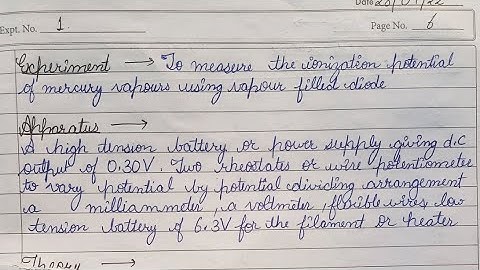 Date 20/01/22
Expt. No. 1.
Page No. 6
Experiment → To measure the ionization potential
of mercury vapours using vapour filled diode
Apparatus →
A high tension battery or power supply giving d.c
output of 0.30V. Two rheostates or wire potentiometer
to vary potential by potential dividing arrangement
a milliammeter, a voltmeter, flexible wires low
tension battery of 6.3V for the filament or heater
Theory →